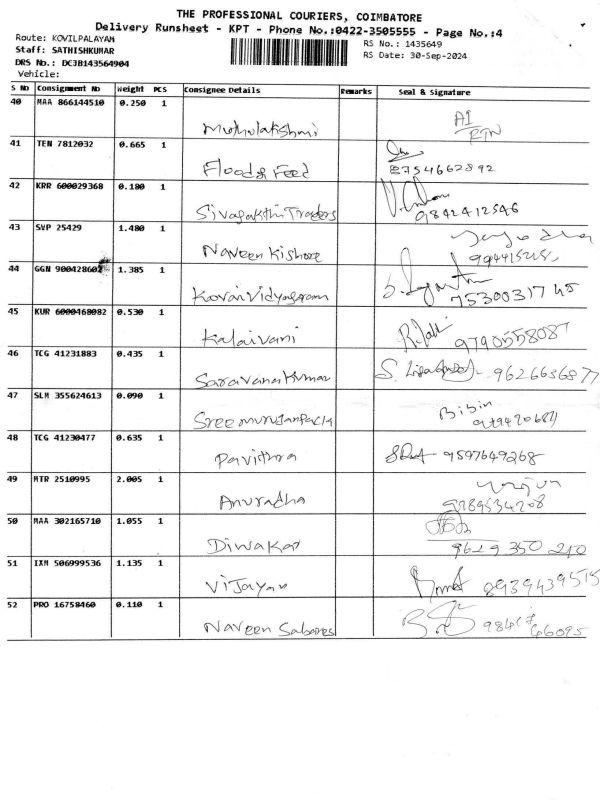 THE PROFESSIONAL COURIERS, COIMBATORE
Delivery Runsheet - KPT - Phone No.:0422-3505555 - Page No.:4
Route: KOVILPALAYAM
RS No.: 1435649
Staff: SATHISHKUMAR
RS Date: 30-Sep-2024
DRS No.: DC3B143564904
Vehicle:
S No Consignment No Weight PCS Consignee Details Remarks Seal & Signature
40 MAA 866144510 0.250 1 Muthulakshmi
41 TEN 7812032 0.665 1 Flood & Feed 8754662892
42 KRR 600029368 0.180 1 Sivasakthi Traders 9842412546
43 SVP 25429 1.480 1 Naveen Kishore
44 GGN 900428602 1.385 1 Kovai Vidyasram 7530031745
45 KUR 6000468082 0.530 1 Kalaivani 9790558087
46 TCG 41231883 0.435 1 Saravana Kumar 9626636877
47 SLM 355624613 0.090 1 Bibin
48 TCG 41230477 0.635 1 Pavithra 9597649268
49 MTR 2510995 2.005 1 Anuradha 9789534208
50 MAA 302165710 1.055 1 Diwakar 9629 350 210
51 IXM 506999536 1.135 1 Vijayan 8939439515
52 PRO 16758460 0.110 1 Naveen